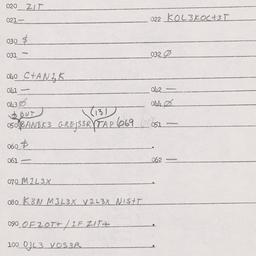 020 ZIT
021 —
022 KOL3KOC+3T
030 $
031 —
032 Ø
040 C+ANZK
041 —
042 —
043 Ø
044 Ø
$ OUT (131)
050 BANEK3 GREJSSR TAD 069
051 —
060 $
061 —
062 —
070 MIL3X
080 K3N MIL3X V2L3X NIS+T
090 OFZOT+/IFZIT+
100 OJL3 VOS3R